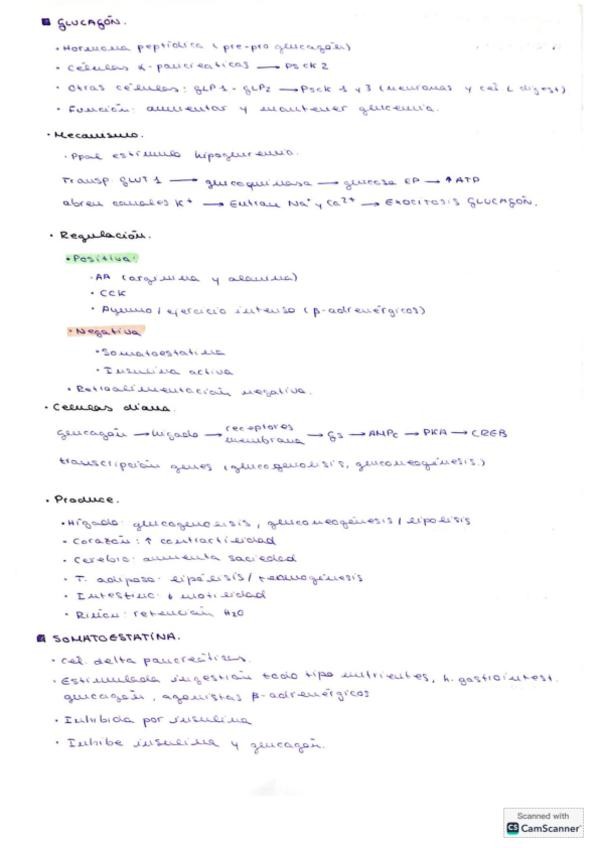 GLUCAGÓN.
· Hormona peptídica (pre-pro glucagón)
· Células α-pancreáticas → PSCK2
· Otras células: GLP1 - GLP2 → PSCK 1 y 3 (neuronas y cel. digest)
· Función: aumentar y mantener glucemia.
· Mecanismo.
· Ppal estímulo hipoglucemia.
Transp. GLUT 1 → glucoquinasa → glucosa 6P → ↑ATP
abren canales K⁺ → Entran Na⁺ y Ca²⁺ → EXOCITOSIS GLUCAGÓN.
· Regulación.
· Positiva:
· AA (arginina y alanina)
· CCK
· Ayuno / ejercicio intenso (β-adrenérgicos)
· Negativa
· Somatoestatina
· Insulina activa
· Retroalimentación negativa.
· Células diana.
glucagón → hígado → receptores membrana → Gs → AMPc → PKA → CREB
transcripción genes (glucogenolisis, gluconeogénesis.)
· Produce.
· Hígado: glucogenolisis, gluconeogénesis / lipolisis
· Corazón: ↑ contractilidad
· Cerebro: aumenta saciedad
· T. adiposo: lipólisis / termogénesis
· Intestino: ↓ motilidad
· Riñón: retención H₂O
SOMATOESTATINA.
· Cel. delta pancreáticas.
· Estimulada ingestión todo tipo nutrientes, h. gastrointest.
glucagón, agonistas β-adrenérgicos
· Inhibida por insulina
· Inhibe insulina y glucagón.
Scanned with
CS CamScanner